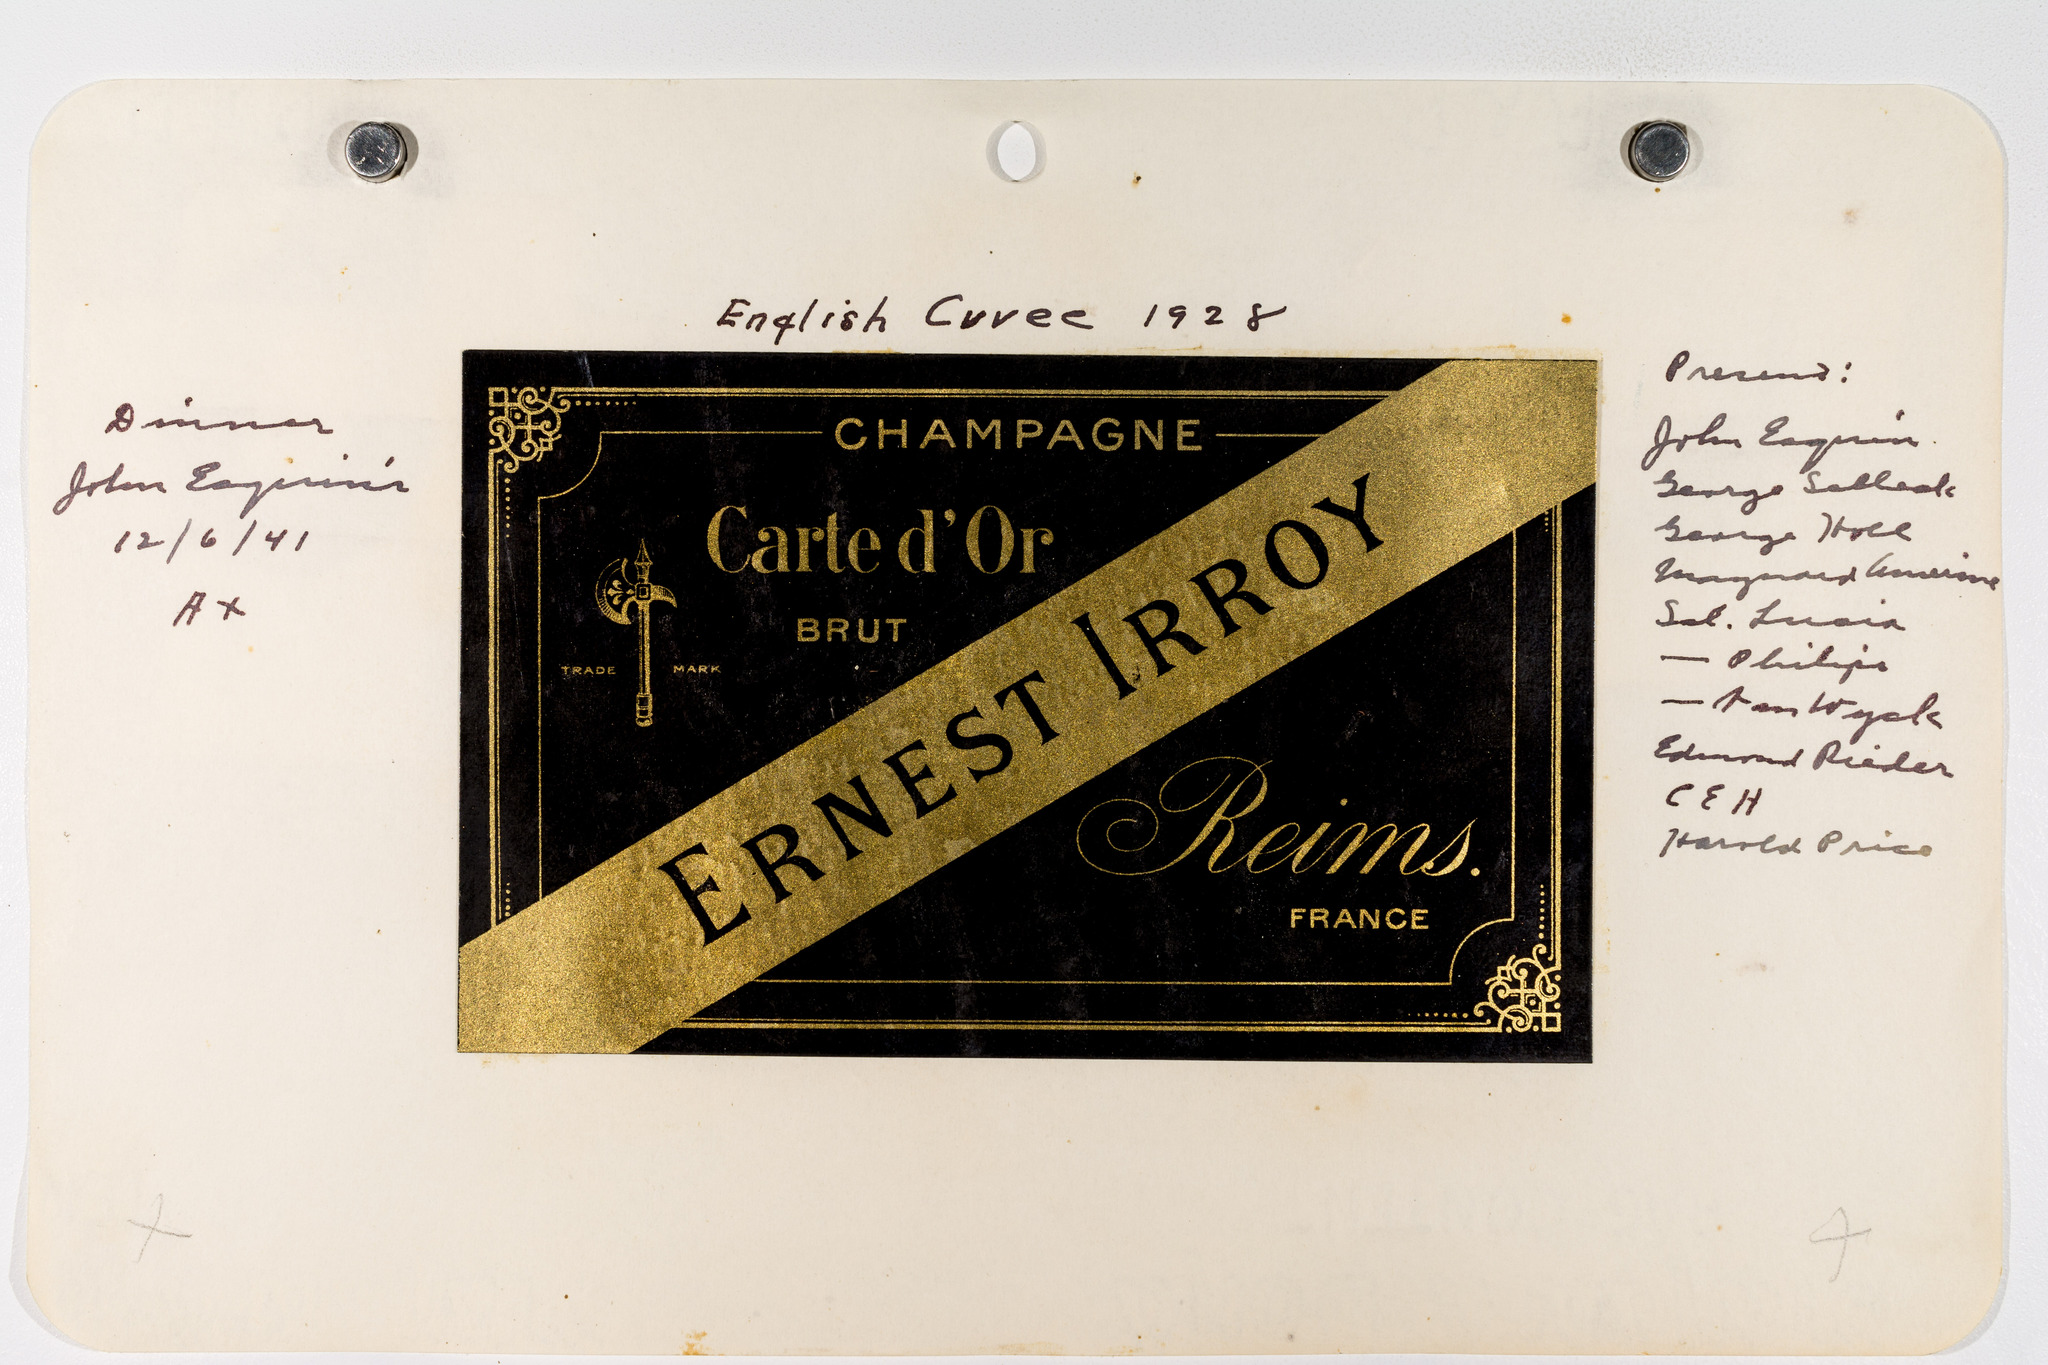 English Cuvee 1928
Dinner
John Esquin's
12/6/41
A+
CHAMPAGNE
Carte d'Or
BRUT
TRADE MARK
ERNEST IRROY
Reims.
FRANCE
Present:
John Esquin
George Selleck
George Holl
Maynard Amerine
Sal. Lucia
— Philips
— Van Wyck
Edmond Rieder
C E H
Harold Price